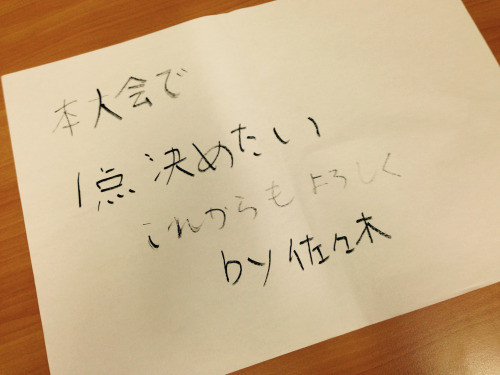 本大会で
1点決めたい
これからもよろしく
by 佐々木